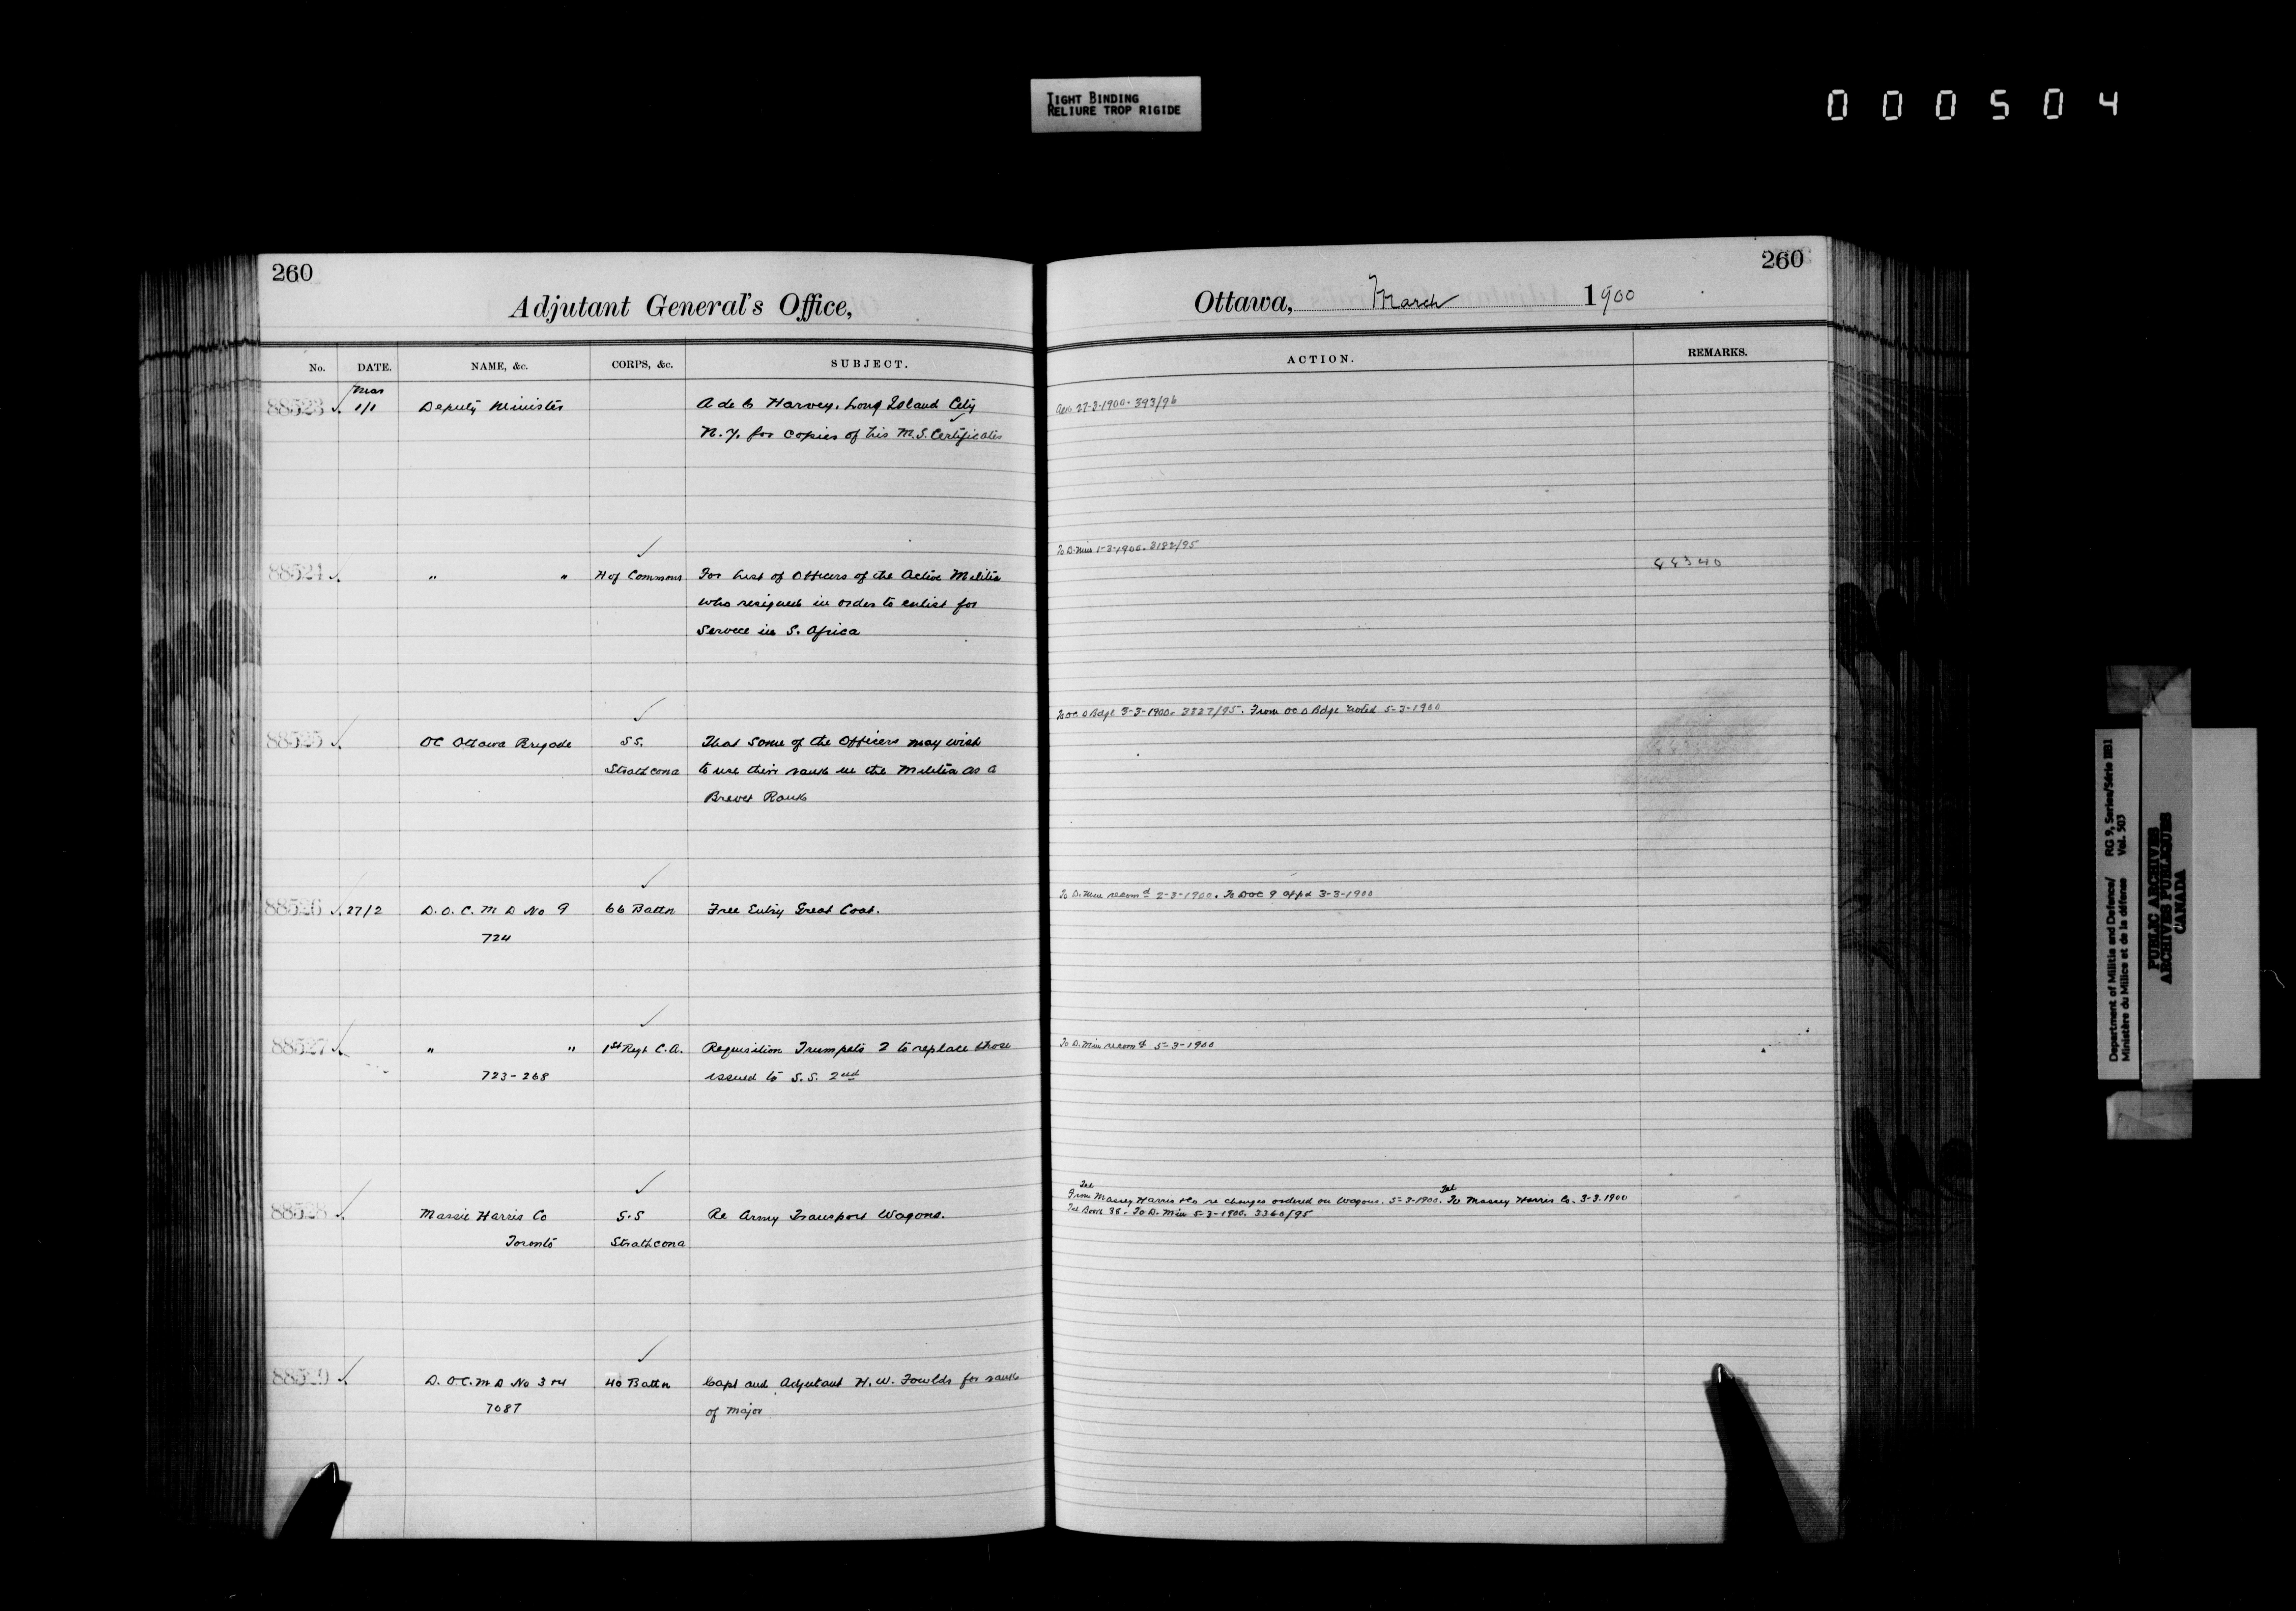 TIGHT BINDING
RELIURE TROP RIGIDE
000504
260
Adjutant General's Office,
No. DATE. NAME, &c. CORPS, &c. SUBJECT.
Mar
88523 1/1 Deputy Minister A de C Harvey, Long Island City
N.Y. for copies of his M.S. Certificates
88524 " " H of Commons For List of Officers of the Active Militia
who resigned in order to enlist for
Service in S. Africa
88525 OC Ottawa Brigade S.S. That some of the Officers may wish
Strathcona to use their rank in the Militia as a
Brevet Rank
88526 27/2 D.O.C. M D No 9 66 Battn Free Entry Great Coat.
724
88527 " " 1st Regt C.A. Requisition Trumpets 2 to replace those
723-268 issued to S.S. 2nd
88528 Massie Harris Co S.S Re Army Transport Wagons.
Toronto Strathcona
88529 D.O.C. M D No 3 & 4 40 Battn Capt and Adjutant H.W. Fowlds for rank
7087 of Major
260
Ottawa, March 1900
ACTION. REMARKS.
27-3-1900. 393/96
To D. Min 1-3-1900. 3182/95
44340
To OC O Bdge 3-3-1900. 3327/95. From OC O Bdge noted 5-3-1900
To D. Min recomd 2-3-1900. To DOC 9 appd 3-3-1900
To D. Min recomd 5-3-1900
Tel Tel
From Massey Harris & Co re changes ordered on Wagons. 5-3-1900. To Massey Harris Co. 3-3-1900
Tel Book 38. To D. Min 5-3-1900. 3360/95
Department of Militia and Defence/ RG 9, Series/Série IIB1
Ministère du Milice et de la défense Vol. 503
PUBLIC ARCHIVES
ARCHIVES PUBLIQUES
CANADA